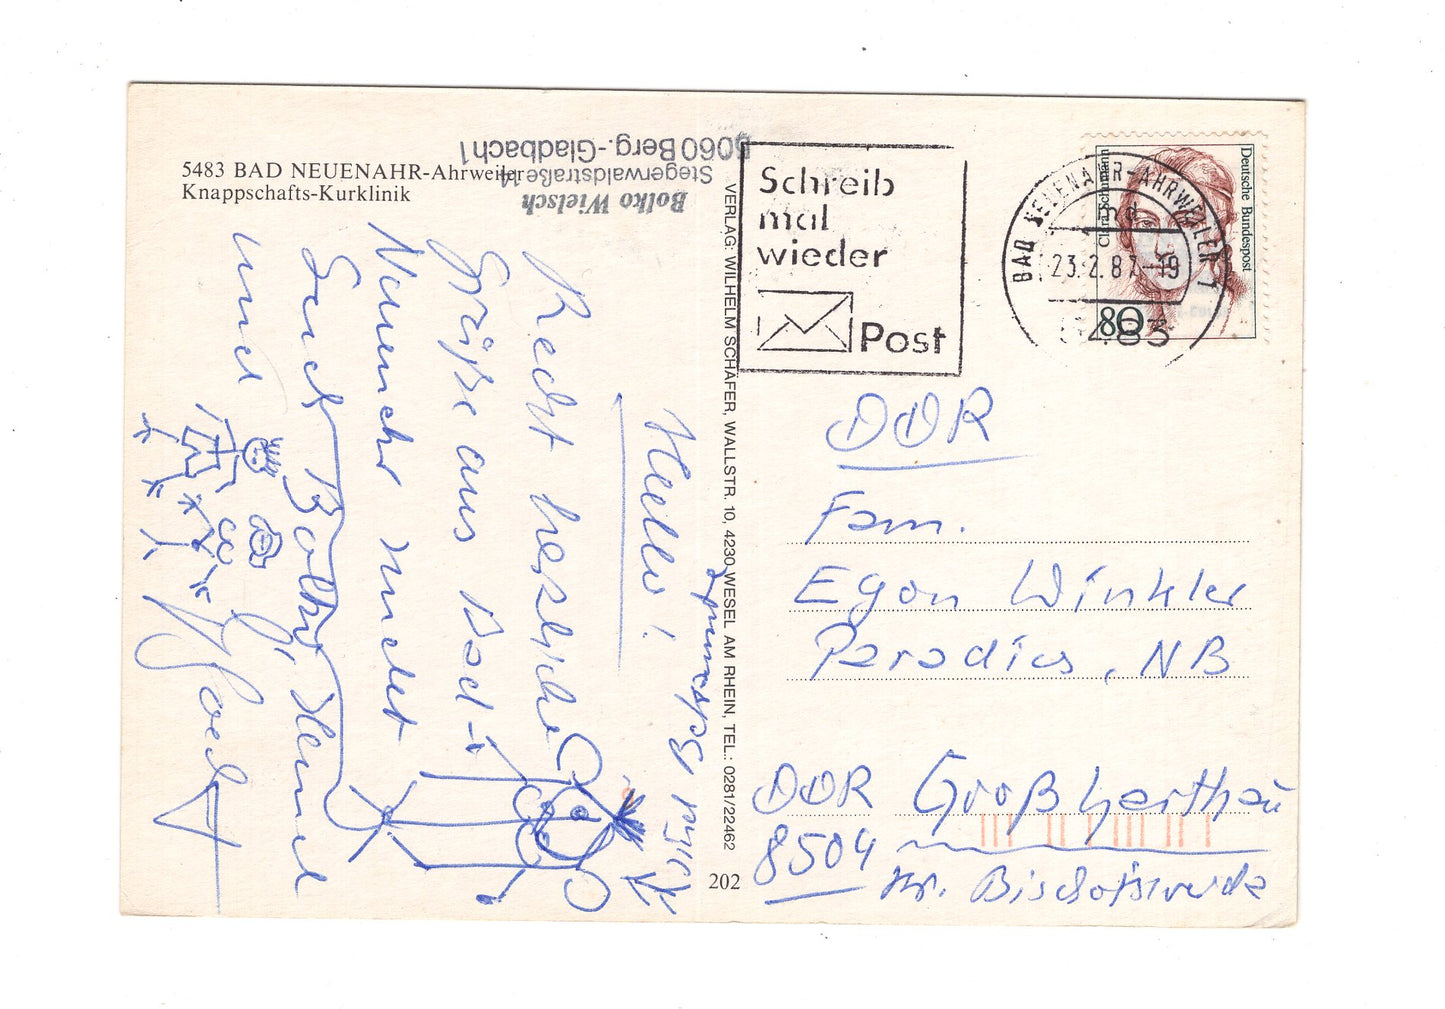 5483 BAD NEUENAHR-Ahrweiler
Knappschafts-Kurklinik
Bolko Wielsch
Stegerwaldstraße 14
5060 Berg.-Gladbach 1
Hello!
Recht herzliche
Grüße aus Bad-
sendet
Euch
und
VERLAG: WILHELM SCHÄFER, WALLSTR. 10, 4230 WESEL AM RHEIN, TEL.: 0281/22462
202
Schreib
mal
wieder
Post
BAD NEUENAHR-AHRWEILER 1
md
23.2.87-19
5483
Deutsche Bundespost
Clara Schumann
80
DDR
Fam.
Egon Winkler
Paradies, NB
DDR Großharthau
8504 Kr. Bischofswerda